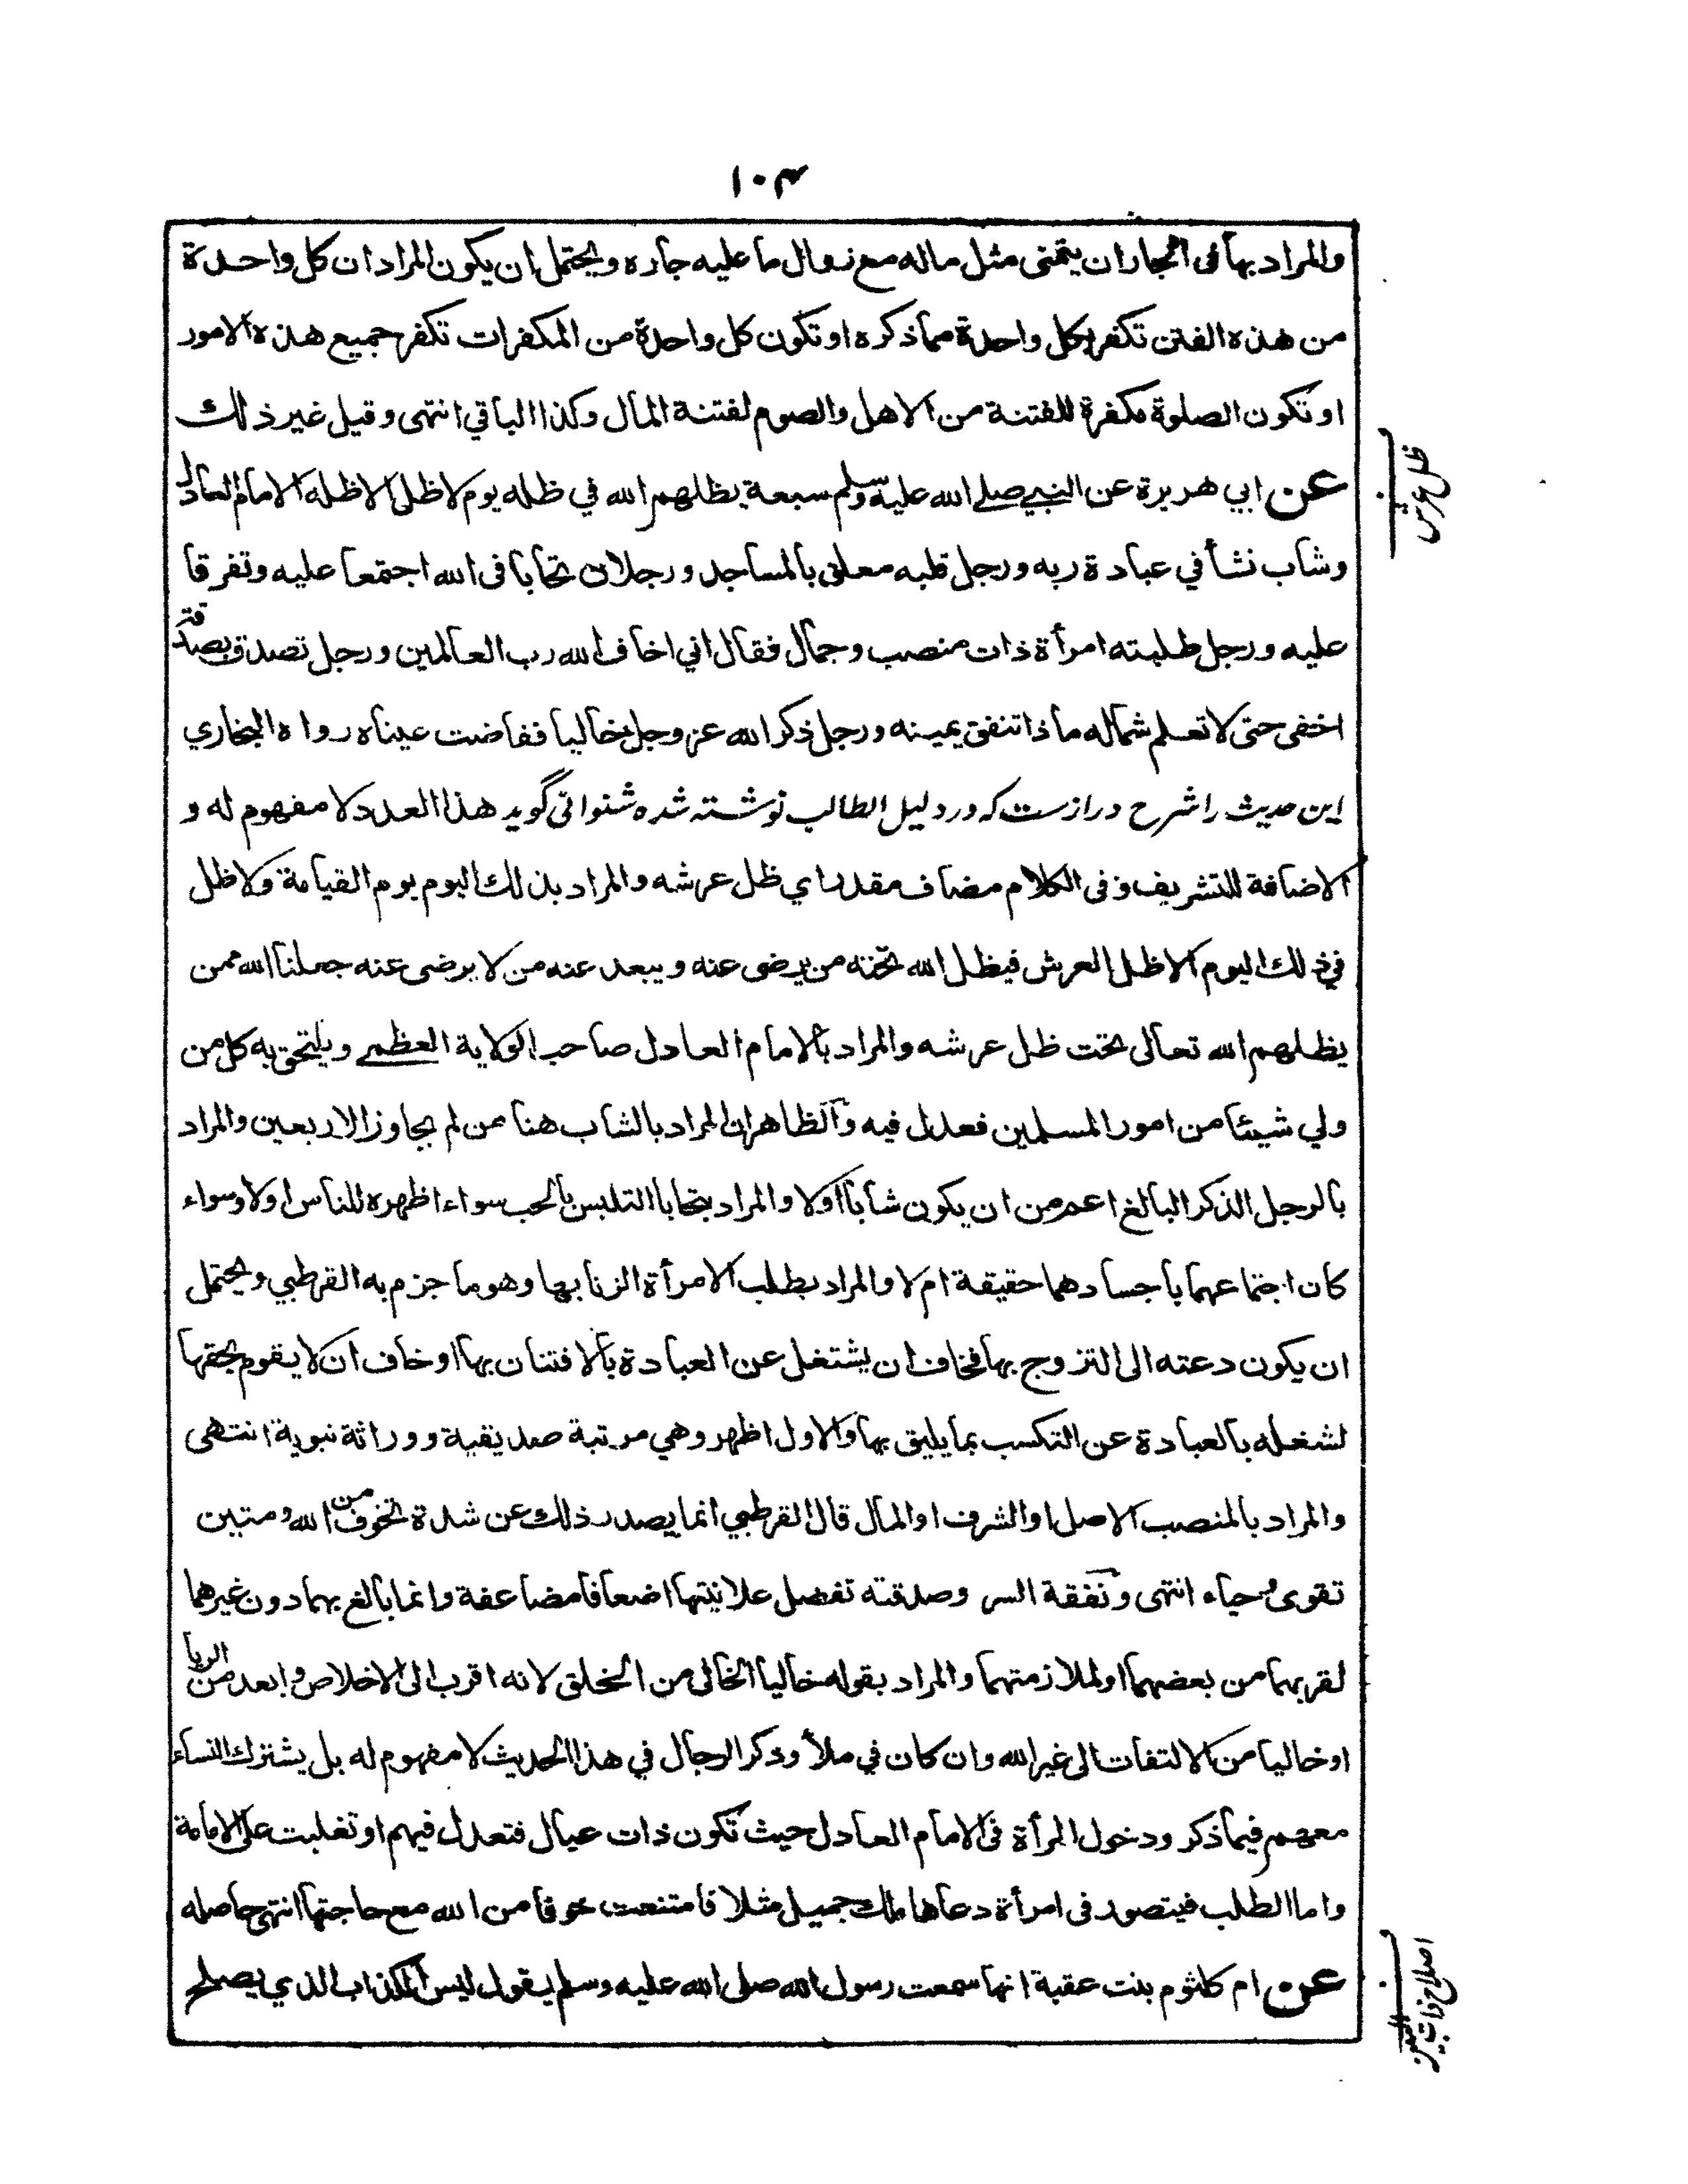 ١٠٣
والمراد بها فى الجار ان يتمنى مثل ماله مع زوال ما عليه جاره ويحتمل ان يكون المراد ان كل واحدة
من هذه الفتن تكفر بكل واحدة مما ذكره او تكون كل واحدة من المكفرات تكفر جميع هذه الامور
او تكون الصلوة مكفرة للفتنة من الاهل والصوم لفتنة المال وكذا الباقي انتهى وقيل غير ذلك
عن ابي هريرة عن النبي صلى الله عليه وسلم سبعة يظلهم الله في ظله يوم لا ظل الا ظله الامام العادل
وشاب نشأ في عبادة ربه ورجل قلبه معلق بالمساجد ورجلان تحابا فى الله اجتمعا عليه وتفرقا
عليه ورجل طلبته امرأة ذات منصب وجمال فقال اني اخاف الله رب العالمين ورجل تصدق بصدقة
اخفى حتى لا تعلم شماله ماذا تنفق يمينه ورجل ذكر الله عز وجل خاليا ففاضت عيناه رواه البخاري
این حدیث را شرح درازست که در دلیل الطالب نوشته شده شنوانی گوید هذا العدد لا مفهوم له و
الاضافة للتشريف وفى الكلام مضاف مقدر اي ظل عرشه والمراد بذلك اليوم يوم القيامة ولا ظل
في ذلك اليوم الا ظل العرش فيظل الله تحته من يرضى عنه ويبعد عنه من لا يرضى عنه جعلنا الله ممن
يظلهم الله تعالى تحت ظل عرشه والمراد بالامام العادل صاحب الولاية العظمى ويلتحق به كل من
ولي شيئا من امور المسلمين فعدل فيه والظاهر ان المراد بالشاب هنا من لم يجاوز الاربعين والمراد
بالرجل الذكر البالغ اعم من ان يكون شابا اولا والمراد بتحابا التلبس بالحب سواء اظهره للناس اولا وسواء
كان اجتماعهما باجسادهما حقيقة ام لا والمراد بطلب الامرأة الزنا بها وهو ما جزم به القرطبي ويحتمل
ان يكون دعته الى التزوج بها فخاف ان يشتغل عن العبادة بالافتنان بها او خاف ان لا يقوم بحقها
لشغله بالعبادة عن التكسب بما يليق بها والاول اظهر وهي مرتبة صديقية ووراثة نبوية انتهى
والمراد بالمنصب الاصل او الشرف او المال قال القرطبي انما يصدر ذلك عن شدة تخوف من الله ومتين
تقوى وحياء انتهى ونفقة السر وصدقته تفضل علانيتها اضعافا مضاعفة وانما بالغ بهما دون غيرهما
لقربهما من بعضهما او لملازمتهما والمراد بقوله خاليا الخالى من الخلق لانه اقرب الى الاخلاص وابعد من الريا
او خاليا من الالتفات الى غير الله وان كان في ملأ وذكر الرجال في هذا الحديث لا مفهوم له بل يشترك النساء
معهم فيما ذكر ودخول المرأة فى الامام العادل حيث تكون ذات عيال فتعدل فيهم او تغلبت على الامامة
واما الطلب فيتصور فى امرأة دعاها ملك جميل مثلا فامتنعت خوفا من الله مع حاجتها انتهى حاصله
عن ام كلثوم بنت عقبة انها سمعت رسول الله صلى الله عليه وسلم يقول ليس الكذاب الذي يصلح
ظل عرش
اصلاح ذات البين